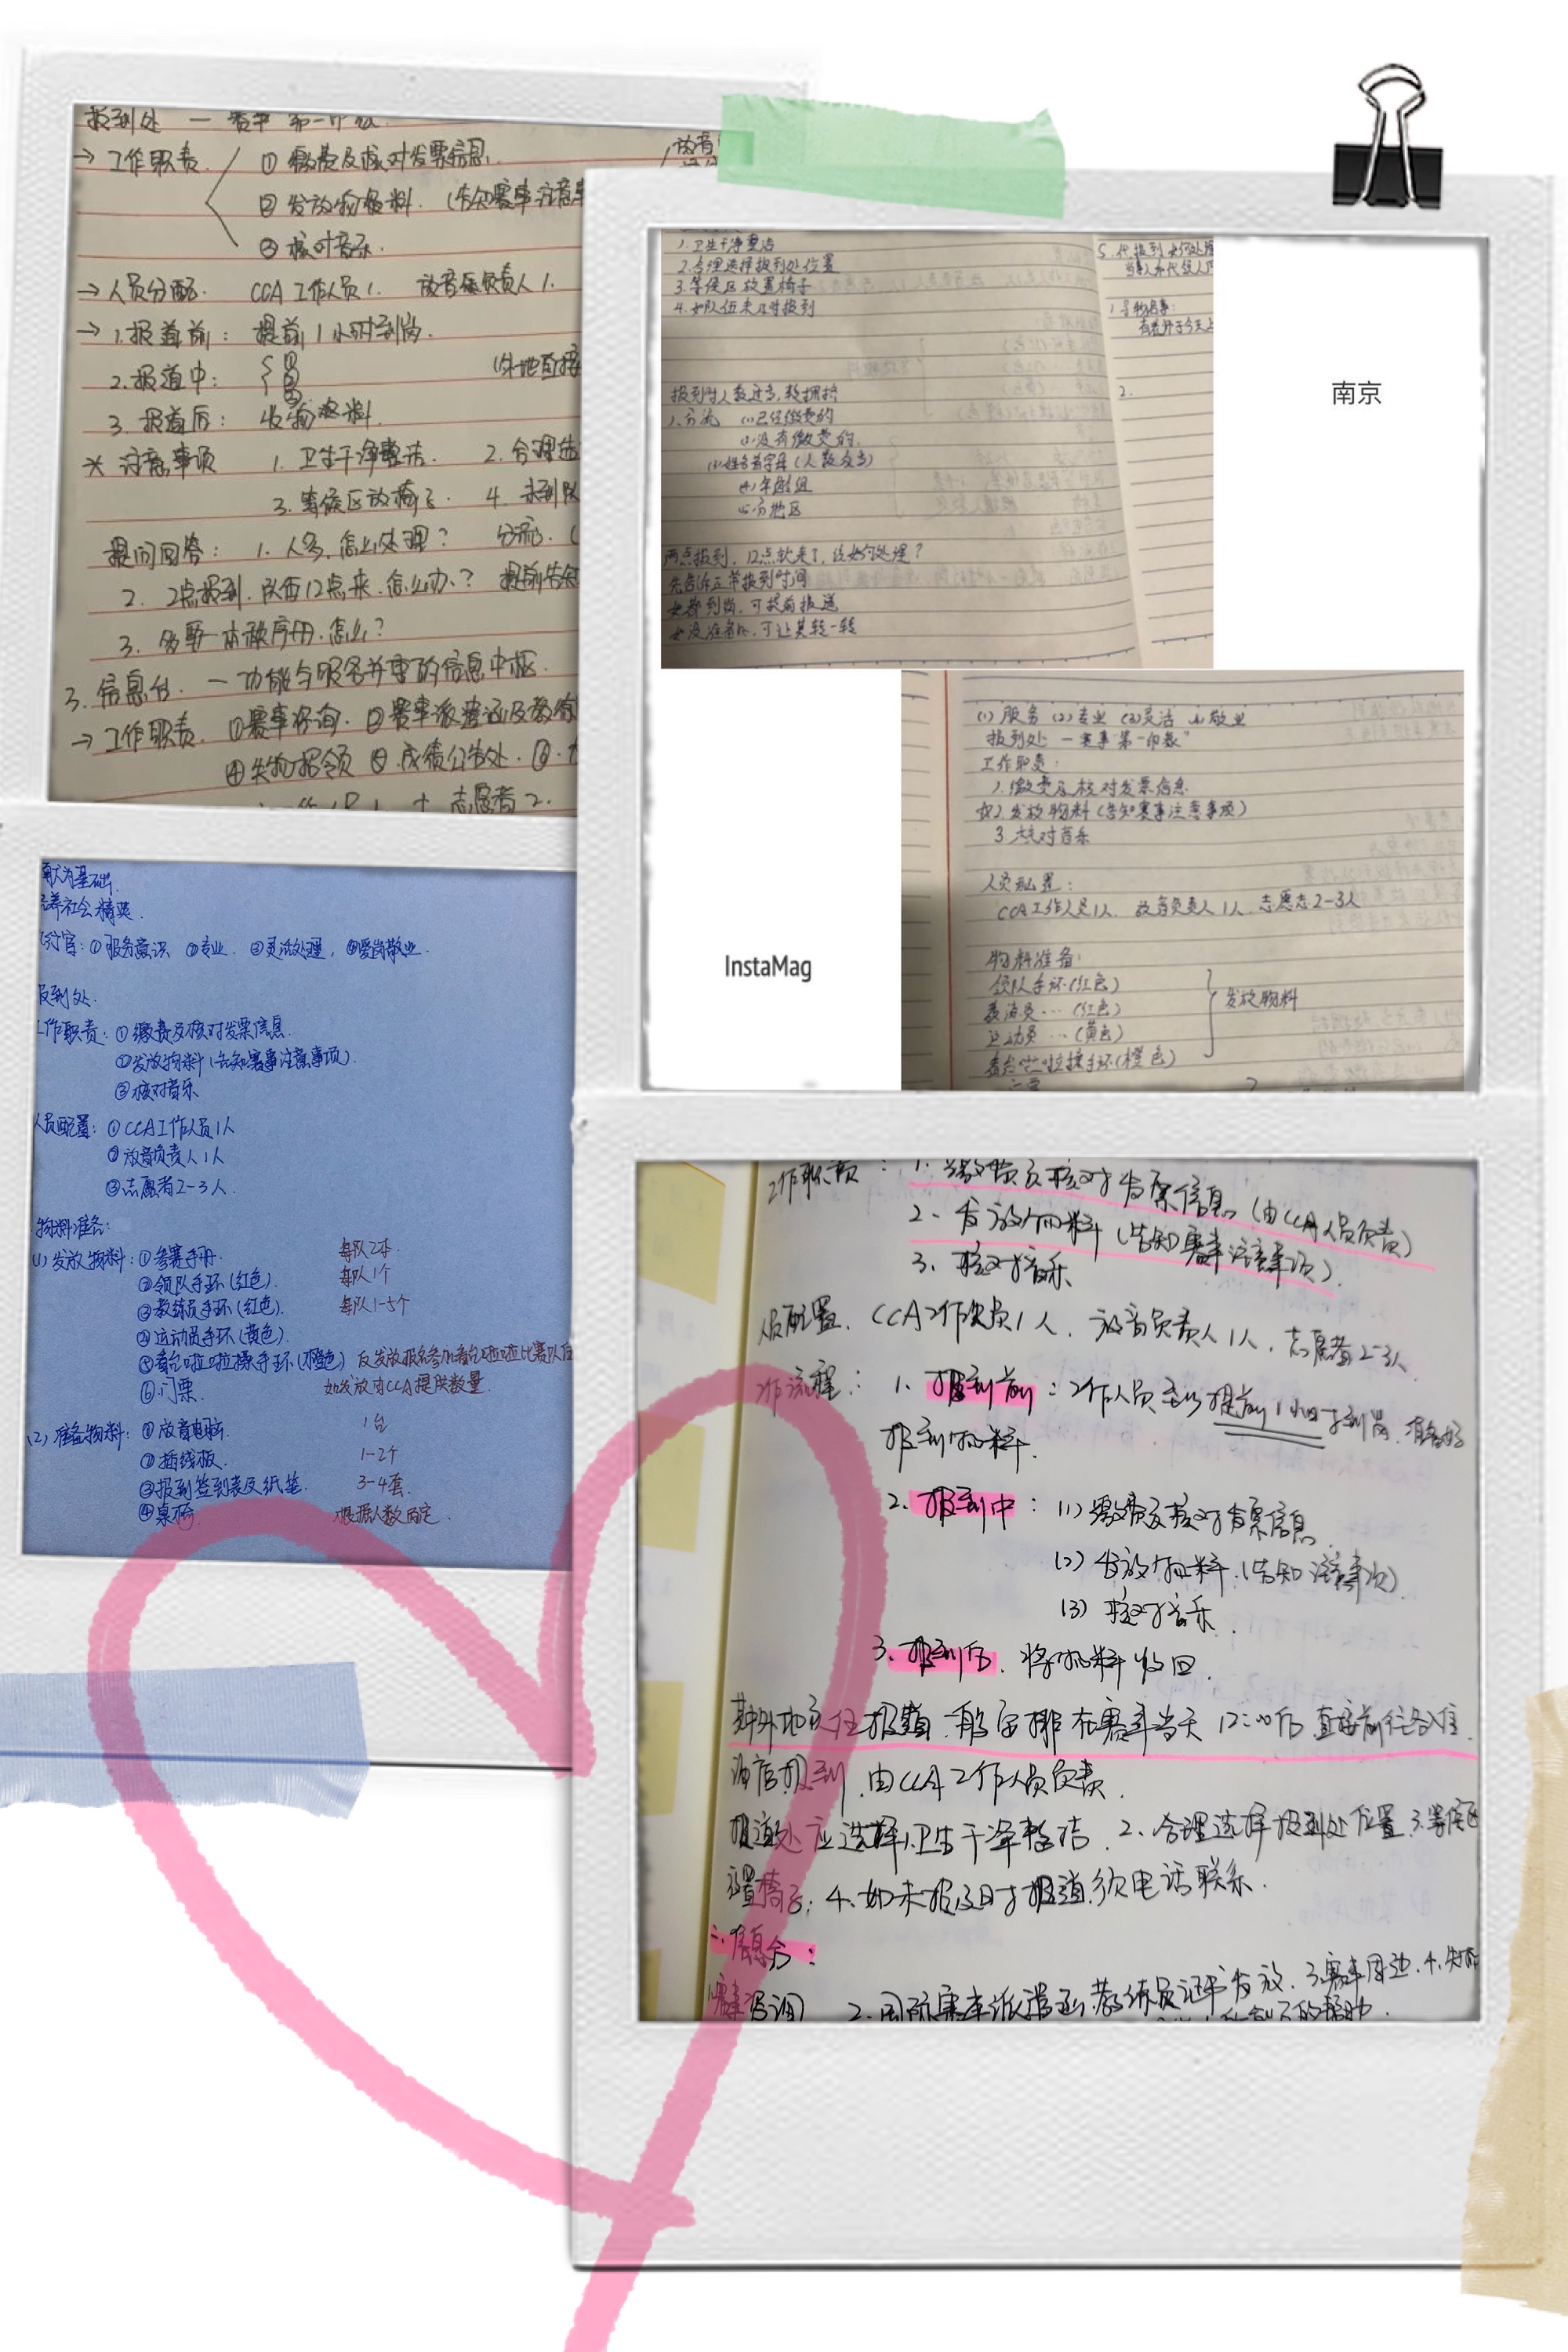 报到处 —
→ 工作职责 ① 缴费及核对发票信息.
② 发放物资料. (告知赛事注意事
③ 核对音乐.
→ 人员分配. CCA 工作人员1. 放音负责人1.
→ 1.报道前: 提前1小时到岗.
2.报道中: ① ② ③ (外地直接
3.报道后: 收物资料.
* 注意事项 1. 卫生干净整洁. 2. 合理选
3. 等候区放椅子. 4. 未到队
提问回答: 1. 人多, 怎么处理? 分流. (
2. 2点报到. 队伍12点来. 怎么办? 提前告知
3. 多要一本秩序册. 怎么?
3. 信息台. — 功能与服务并重的信息中枢.
→ 工作职责. ①赛事咨询. ②赛事派遣函及教练
④失物招领 ⑤.成绩公告处. ⑥.
志愿者2.
南京
1.卫生干净整洁
2.合理选择报到处位置
3.等候区放置椅子
4.如队伍未及时报到
报到时人数过多,较拥挤
1.分流 (1)已经缴费的
(2)没有缴费的.
(3)姓名首字母(人数众多)
(4)年龄组
(5)分地区
两点报到, 12点就来了, 该如何处理?
先告诉正常报到时间
如都到岗, 可提前报道
如没准备好, 可让其转一转
5.代报到 如何处理
2.
InstaMag
(1)服务 (2)专业 (3)灵活 (4)敬业
报到处 — 赛事"第一印象"
工作职责:
1.缴费及核对发票信息
2.发放物料(告知赛事注意事项)
3.核对音乐
人员配置:
CCA工作人员1人. 放音负责人1人. 志愿者2-3人
物料准备:
领队手环(红色)
教练员…(红色)
运动员…(黄色)
看台啦啦操手环(橙色)
发放物料
献为基础.
培养社会精英.
①服务意识 ②专业. ③灵活处理, ④爱岗敬业.
报到处.
工作职责: ①缴费及核对发票信息.
②发放物料(告知赛事注意事项).
③核对音乐
人员配置: ①CCA工作人员1人
②放音负责人1人
③志愿者2-3人.
物料准备:
(1)发放物料: ①参赛手册. 每队2本.
②领队手环(红色). 每队1个
③教练员手环(红色). 每队1-5个
④运动员手环(黄色).
⑤看台啦啦操手环(橙色) 仅发放报名参加看台啦啦比赛队伍
⑥门票. 如发放由CCA提供数量.
(2)准备物料: ①放音电脑. 1台
②插线板. 1-2个
③报到签到表及纸笔. 3-4套.
④桌椅 根据人数而定.
工作职责: 1. 缴费及核对发票信息 (由CCA人员负责)
2. 发放物料 (告知赛事注意事项).
3. 核对音乐
人员配置. CCA工作人员1人. 放音负责人1人. 志愿者2-3人
工作流程: 1. 报到前: 工作人员至少提前1小时到岗. 准备好
报到物料.
2. 报到中: (1) 缴费及核对发票信息
(2) 发放物料.(告知注意事项).
(3) 核对音乐.
3. 报到后. 将物料收回.
其中外地队伍报道一般安排在赛事当天12:00后 直接前往各入住
酒店报到, 由CCA工作人员负责.
报道处应选择1.卫生干净整洁. 2. 合理选择报到处位置 3.等候区
放置椅子; 4.如未报及时报道须电话联系.
二.信息台:
1.赛事咨询 2.国际赛事派遣函.教练员证书发放. 3.赛事周边. 4.失物